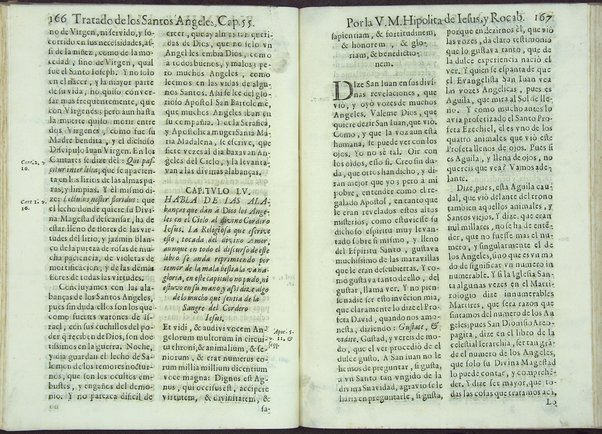 166 Tratado de los Santos Angeles, Cap. 55.
no de Virgen, ni servido, y so-
corrido en sus necessidades, assi
de la niñez, como de la mo-
cedad, sino de Virgen, qual
fue el Santo Ioseph? Y no solo
en el nacer, y la mayor parte
de su vida, no quiso conver-
sar mas frequentemente, que
con Virgenes; pero aun hasta
la muerte quiso morir entre
dos Virgenes, como fue su
Madre bendita, y el dichoso
Discipulo Iuan Virgen. En los
Cantares se dize del: Que pas-
centur inter lilia, que se apacenta-
va en los lirios de las almas pu-
ras, y limpias. Y el mismo di-
ze: Lectulus noster floridus: que
el lecho donde quiere su Divi-
na Magestad descansar, ha de
estar lleno de flores de las vir-
tudes del lirio, y jazmin blan-
co de la pureza, de rosas de mu-
cha paciencia, de violetas de
mortificacion, y de las demàs
flores de todas las virtudes.
Concluyamos con las ala-
banças de los Santos Angeles,
pues sin duda ellos son los que
como fuertes varones de Is-
rael, con sus cuchillos del po-
der q̃ recben de Dios, son do-
tissimos en la guerra. Noche,
y dia guardan el lecho de Sa-
lomon de los temores noctur-
nos, que son los ocultos em-
bustes, y engaños del demo-
nio. Y no parezca dificil de
Cant. 2.
16.
Cant. 1.
16.
creer, que ay almas tan queri-
das de Dios, que no solo vn
Angel les embia Dios, como
a todos buenos, y malos; pe-
ro muchos Angeles, como
leemos en las vidas de algu-
nos Santos. Assi se lee del glo-
rioso Apostol San Bartolomè,
que muchos Angeles iban en
su compañia. De la Serafina,
y Apostolica muger Santa Ma-
ria Madalena, se escrive, que
siete vezes al dia baxavan An-
geles del Cielo, y la levanta-
van a las divinas alabanças.
CAPITVLO LV.
HABLA DE LAS ALA-
banças que dàn à Dios los Ange-
les en el Cielo al mismo Cordero
Iesus. La Religiosa que escrive
esto, tocada del divino Amor,
aunque en todo el discurso de esta
obra se anda reprimiendo por
temor de la mala bestia la vana-
gloria, en este capitulo no pudo, ni
estuvo en su mano q̃ assi dixe algo
de lo mucho que sentia de la
Sangre del Cordero
Iesus.
Et vidi, & audivi vocem An-
gelorum multorum in circui-
tu throni, & animalium, & se-
niorum, & erat numerus eo-
rum millia millium dicentium
voce magna: Dignus est Ag-
nus, qui occisus est, accipere
virtutem, & divinitatem, &
sa-
Apoc. 5.
11. &
seqq.
Por la V. M. Hipolita de Iesus, y Rocab. 167
sapientiam, & fortitudinem,
& honorem, & glo-
riam, & benedictio-
nem.
Dize San Iuan en sus divi-
nas revelaciones, que
viò, y oyò vozes de muchos
Angeles. Valeme Dios, que
quiere dezir San Iuan, que viò?
Como, y que la voz aun esta
humana, se puede ver con los
ojos. Yo no se tal. Oir con
los oidos, esso si. Creo sin du-
da, que otros han dicho, y di-
ràn mejor que yo; pero a mi
pobre, entender como el re-
galado Apostol, en tanto que
le eran revelados estos altos
misterios, como estuviesse su
dichoso espiritu muy levan-
tado sobre si mismo, y lleno
del Espiritu Santo, gustava
muchissimo de las maravillas
que le eran descubiertas. Y co-
mo gustava tanto dello, del
gustar, llama ver. Y no pien-
so nadie ser esto invencion mia,
que claramente lo dize el Pro-
feta David, quando nos amo-
nesta, diziendo: Gustate, &
videte, Gustad, y vereis de mo-
do, que el ver procedio de el
dulce gusto. A San Iuan no le
hemos de preguntar, si gusta-
va vn Santo tan vngido de la
divina Suavidad, agravio se le
haria en preguntarle, si gusta,
porque en dezirnos èl, que viò
las vozes, da claro testimonio
que lo gustava tanto, que de
la dulce experiencia naciò el
ver. Y quien se espanta de que
el Evangelista San Iuan vea
las vozes Angelicas, pues es
Aguila, que mira al Sol de lle-
no. Y como mucho antes lo
avia profetizado el Santo Pro-
feta Ezechiel, el es vno de los
quatro animales que viò este
Profeta llenos de ojos. Pues si
es Aguila, y llena de ojos, no
quereis que vea? Que no veràs
Dize, pues, esta Aguila cau-
dal, que viò delante del trono
tambien aquellos animales, y
Santos viejos. Y dize, que eran
mil millares, no se ha de enten-
der, que no fuesse mas el nu-
mero, y singularmente el de
los Angeles, sino que es vn mo-
do de significar vn numero in-
numerable. Y si la Iglesia San-
ta algunas vezes en el Marti-
rologio dize innumerables
Martires, que sera razon que
sintamos del numero de los An-
geles; pues San Dionisio Areo-
pagita, dize en el libro de la
celestial Ierarchia, ser tan gran-
de el numero de los Angeles,
que solo su Divina Magestad
lo puede contar, y comprehen-
der. Y dize ser mayor, que to-
das las cosas que tenemos acà.
Lo